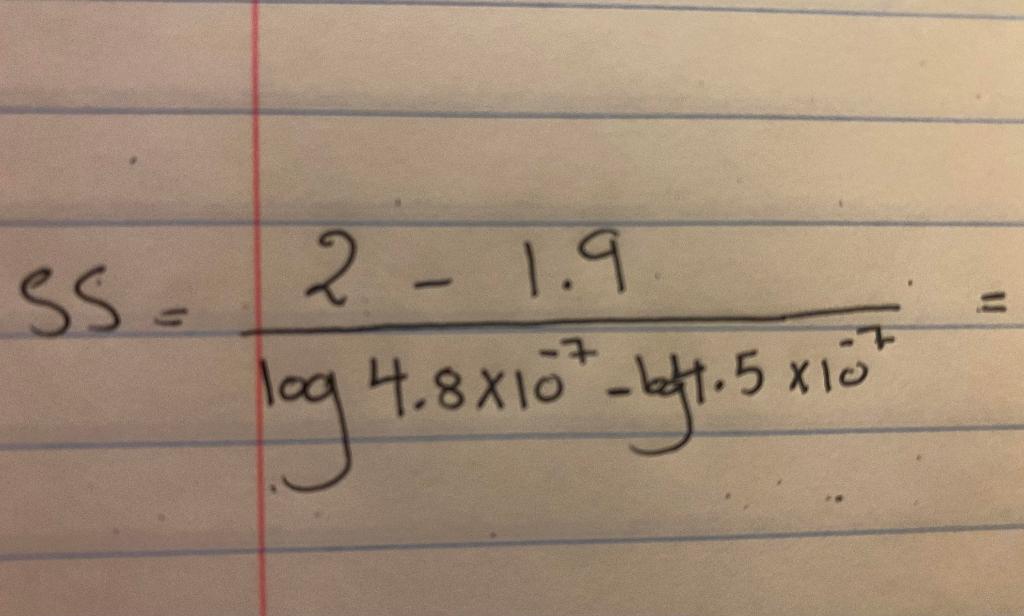 SS = 2 - 1.9 / log 4.8×10⁻⁷ - log 4.5×10⁻⁷ =